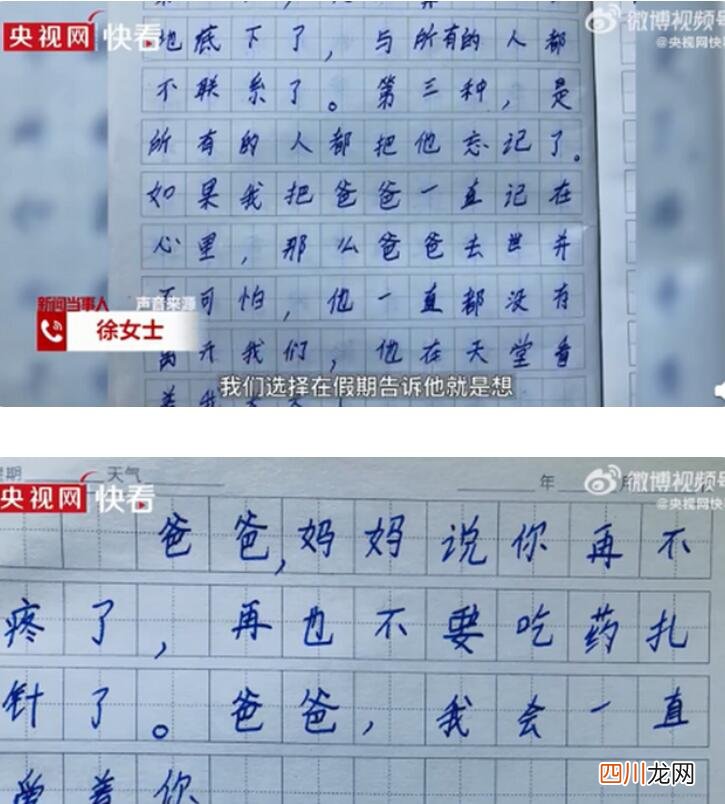 央视网 快看
微博视频号
@央视网快
地底下了，与所有的人都
不联系了。第三种，是
所有的人都把他忘记了。
如果我把爸爸一直记在
心里，那么爸爸去世并
不可怕，他一直都没有
离开我们，他在天堂看
着我
新闻当事人 声音来源
徐女士
我们选择在假期告诉他就是想
星期 天气 年 月
央视网 快看
微博视频号
@央视网快
爸爸，妈妈说你再不
疼了，再也不要吃药扎
针了。爸爸，我会一直
爱着你
四川龙网